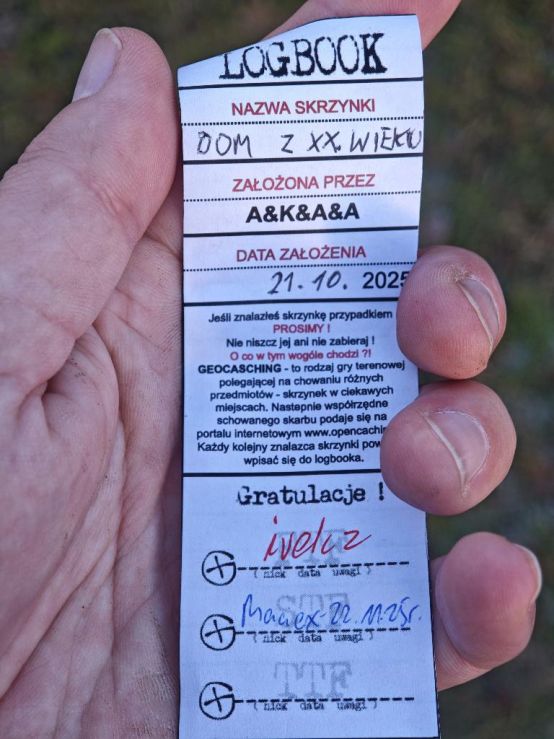 LOGBOOK
NAZWA SKRZYNKI
DOM Z XX. WIEKU
ZAŁOŻONA PRZEZ
A&K&A&A
DATA ZAŁOŻENIA
21.10. 2025
Jeśli znalazłeś skrzynkę przypadkiem
PROSIMY !
Nie niszcz jej ani nie zabieraj !
O co w tym wogóle chodzi ?!
GEOCASCHING - to rodzaj gry terenowej
polegającej na chowaniu różnych
przedmiotów - skrzynek w ciekawych
miejscach. Nastepnie współrzędne
schowanego skarbu podaje się na
portalu internetowym www.opencachin
Każdy kolejny znalazca skrzynki pow
wpisać się do logbooka.
Gratulacje !
ivelcz
( nick data uwagi )
STF
22.11.25r.
( nick data uwagi )
TTF
( nick data uwagi )